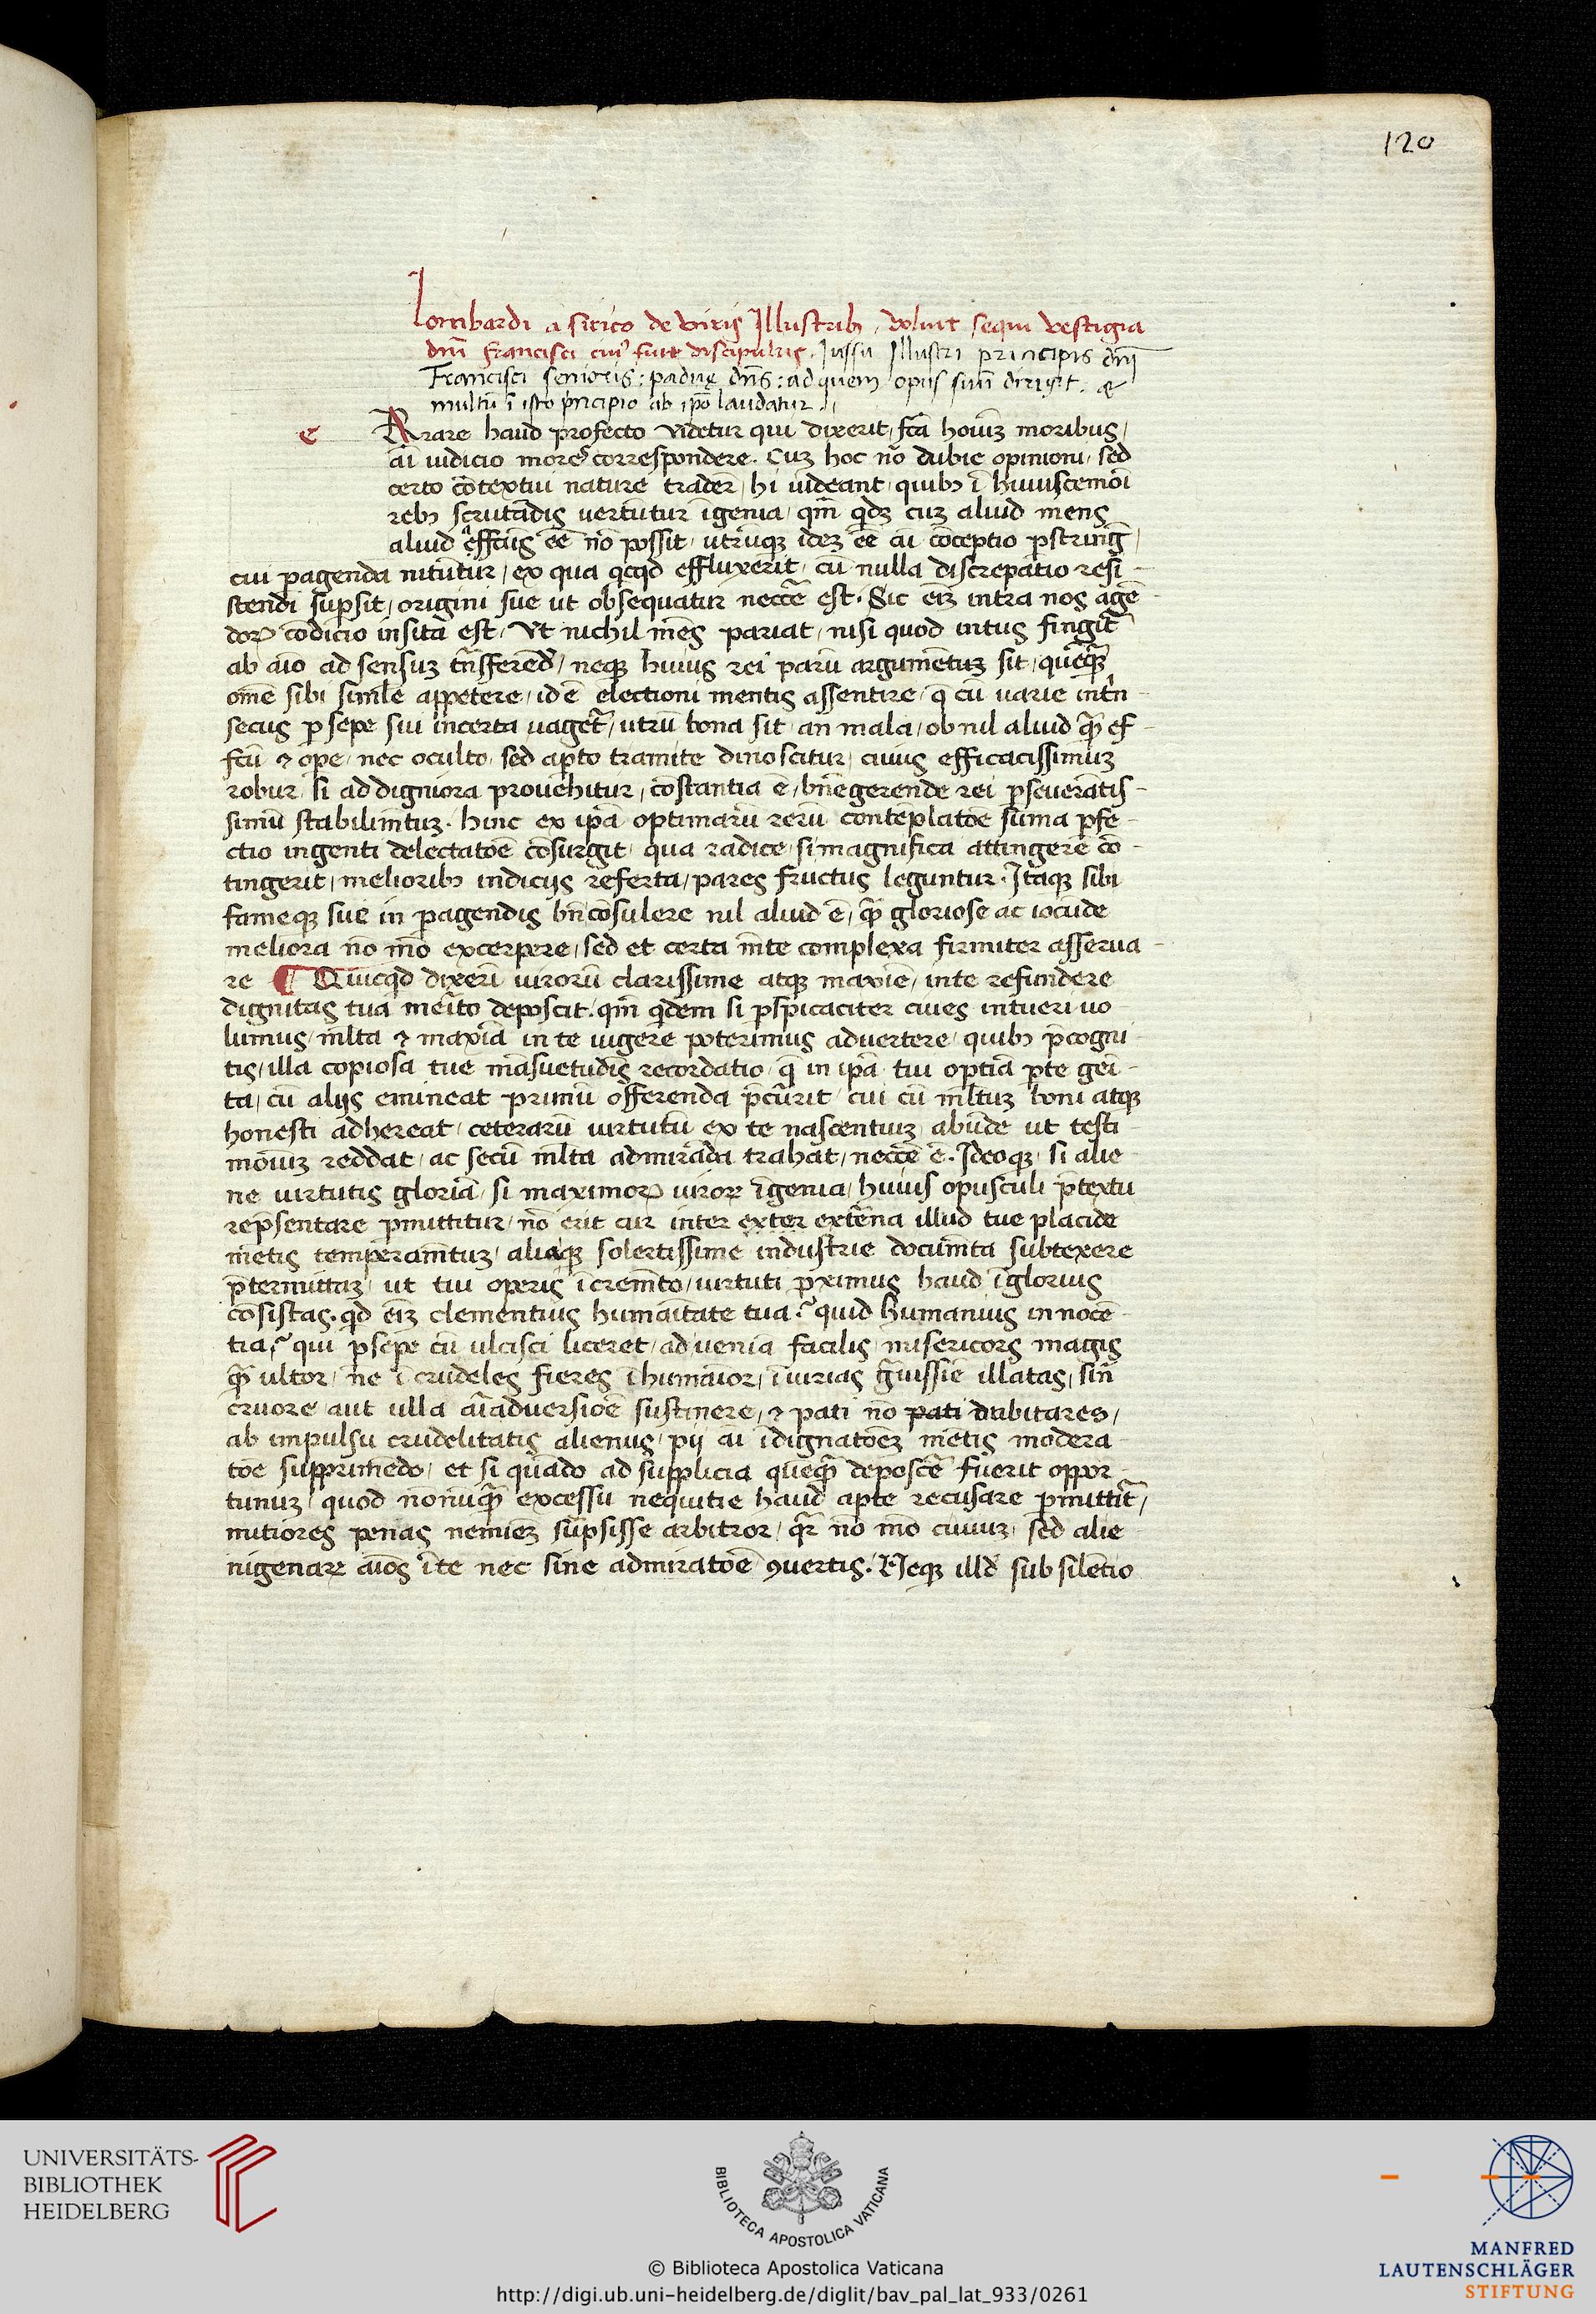 120
Lombardi a sirico de viris Illustribꝫ, voluit sequi vestigia
dnī francisci cuiꝰ fuit discipulus. Iussu Illustri principis dnī
Francisci senioris: paduę dn̄s: ad quem opus suū dirigit. &
multū ī isto pn̄cipio ab ip̄o laudatur.
e Rrare haud profecto videtur qui dixerit, fc̄a hoīuꝫ moribus,
aī iudicio mores correspondere. Cuꝫ hoc nō dubie opinioni, sed
certo cōtextui nature tradere, hi uideant, quibꝫ ī huiuscemōi
rebꝫ scrutādis vertūtur īgenia, qm̄ qdꝫ cuꝫ aliud mens
aliud effciēs eē nō possit, utrūqꝫ ideꝫ eē aī cōceptio pstrinḡ,
cui pagenda nitūtur, ex qua qcqd effluxerit, cū nulla discrepātio resi-
stendi supsit, origini sue ut obsequatur necc̄e est. Sic eīꝫ intra nos agē-
doꝝ cōdicio insita est, Vt nichil mēs pariat, nisi quod intus fingit̄
ab aīo ad sensuꝫ trn̄sferend, neqꝫ huius rei parū argumētuꝫ sit, quēqꝫ
om̄e sibi simile appetere, id ē electioni mentis assentire, q̄ cū varie intrn̄-
secus p sepe sui incerta uaget̄, utrū bona sit an mala, ob nil aliud q̄ꝫ ef-
fcū & ope, nec oculto, sed apto tramite dinoscitur, cuius efficacissimuꝫ
robur si ad digniora prouehitur, cōstantia ē, bn̄egerende rei pseueratis-
simū stabilimtuꝫ. hinc ex ip̄a optimarū rerū contēplatōe sūma pfe-
ctio ingenti delectatōe cōsurgit, qua radice, si magnifica attingere cō-
tingerit, melioribꝫ indicijs referta, pares fructus leguntur. Itaqꝫ sibi
fameqꝫ sue in pagendis bn̄ cōsulere nil aliud ē, q̄ꝫ gloriose ac iocūde
meliora nō mō excerpere, sed et certa mēte complexa firmiter asserua-
re ¶ Quicqd dixerī uirorū clarissime atqꝫ maxie, inte refundere
dignitas tua merito deposcit. qm̄ qdem si pspicaciter ciues intueri uo
lumus, mlta & maxia in te uigere poterimus aduertere, quibꝫ p̄cogni-
tis, illa copiosa tue māsuetudīs recordatio, q̄ in ip̄a tui optīa pte geni-
ta, cū alijs emineat primū offerenda p̄curit, cui cū mltuꝫ boni atqꝫ
honesti adhereat, ceterarū uirtutū ex te nascentiuꝫ abūde ut testi-
moīuꝫ reddat, ac secū mlta admirāda trahat, necc̄e ē. Ideoqꝫ, si alie-
ne uirtutis gloriā, si maximoꝝ uiroꝝ īgenia, huius opusculi p̄textu
rep̄sentare pmittitur, nō erit cur inter exter extērna illud tue placide
mētis temperamtuꝫ, aliaqꝫ solertissime industrie documta subtexere
p̄termittaꝫ, ut tui operis īcremto, uirtuti pximus haud īglorius
cōsistas. qd eīꝫ clementius humāitate tua? quid humanius innocē-
tia? qui psepe cū ulcisci liceret, ad uenia facilis, misericors magis
q̄ꝫ ultor, ne ī crudeles fieres īhumaior, īiurias grauissie illatas, sin̄
cruore aut ulla aīaduersiōe sustinere, & pati nō pati dubitares,
ab impulsu crudelitatis alienus, pij aī īdignatōeꝫ mētis modera-
tōe supprimēdo, et si quādo ad supplicia quēq̄ꝫ deposce fuerit oppor-
tunuꝫ, quod nōnūq̄ꝫ excessu nequitie haud apte recusare pmittit̄,
mitiores penas nemieꝫ sūpsisse arbitror, qr̄ nō mō ciuiuꝫ, sed alie-
nigenaꝝ aīos īte nec sine admiratōe ꝯuertis. Neqꝫ illd sub silētio
UNIVERSITÄTS-
BIBLIOTHEK
HEIDELBERG
BIBLIOTECA APOSTOLICA VATICANA
© Biblioteca Apostolica Vaticana
http://digi.ub.uni-heidelberg.de/diglit/bav_pal_lat_933/0261
MANFRED
LAUTENSCHLÄGER
STIFTUNG